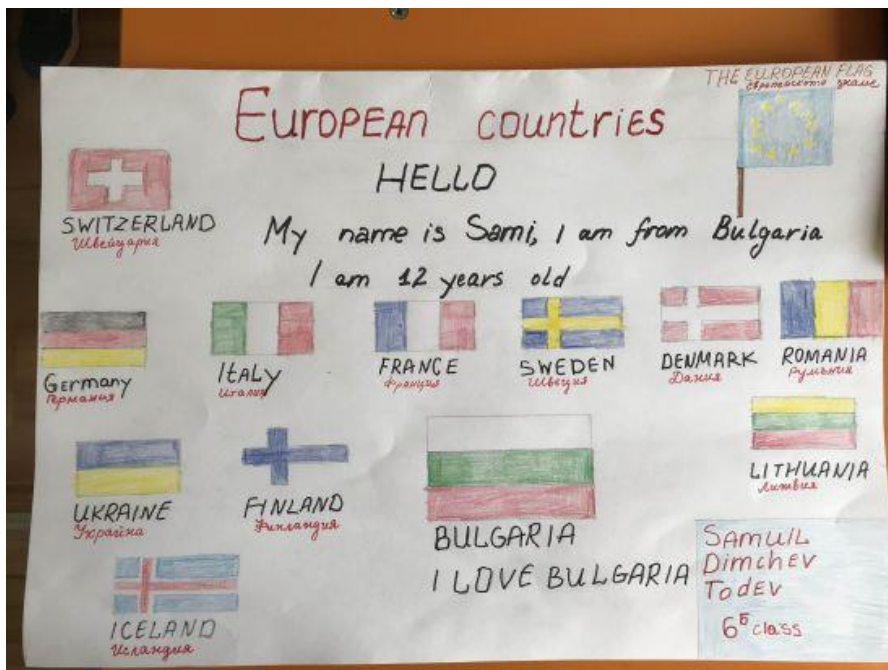 THE EUROPEAN FLAG
европейското знаме
EUROPEAN COUNTRIES
HELLO
SWITZERLAND
Швейцария
My name is Sami, I am from Bulgaria
I am 12 years old
Germany
Германия
ITALY
Италия
FRANCE
Франция
SWEDEN
Швеция
DENMARK
Дания
ROMANIA
Румъния
UKRAINE
Украйна
FINLAND
Финландия
BULGARIA
I LOVE BULGARIA
LITHUANIA
Литвия
ICELAND
Исландия
SAMUIL
DIMCHEV
TODEV
6Б class